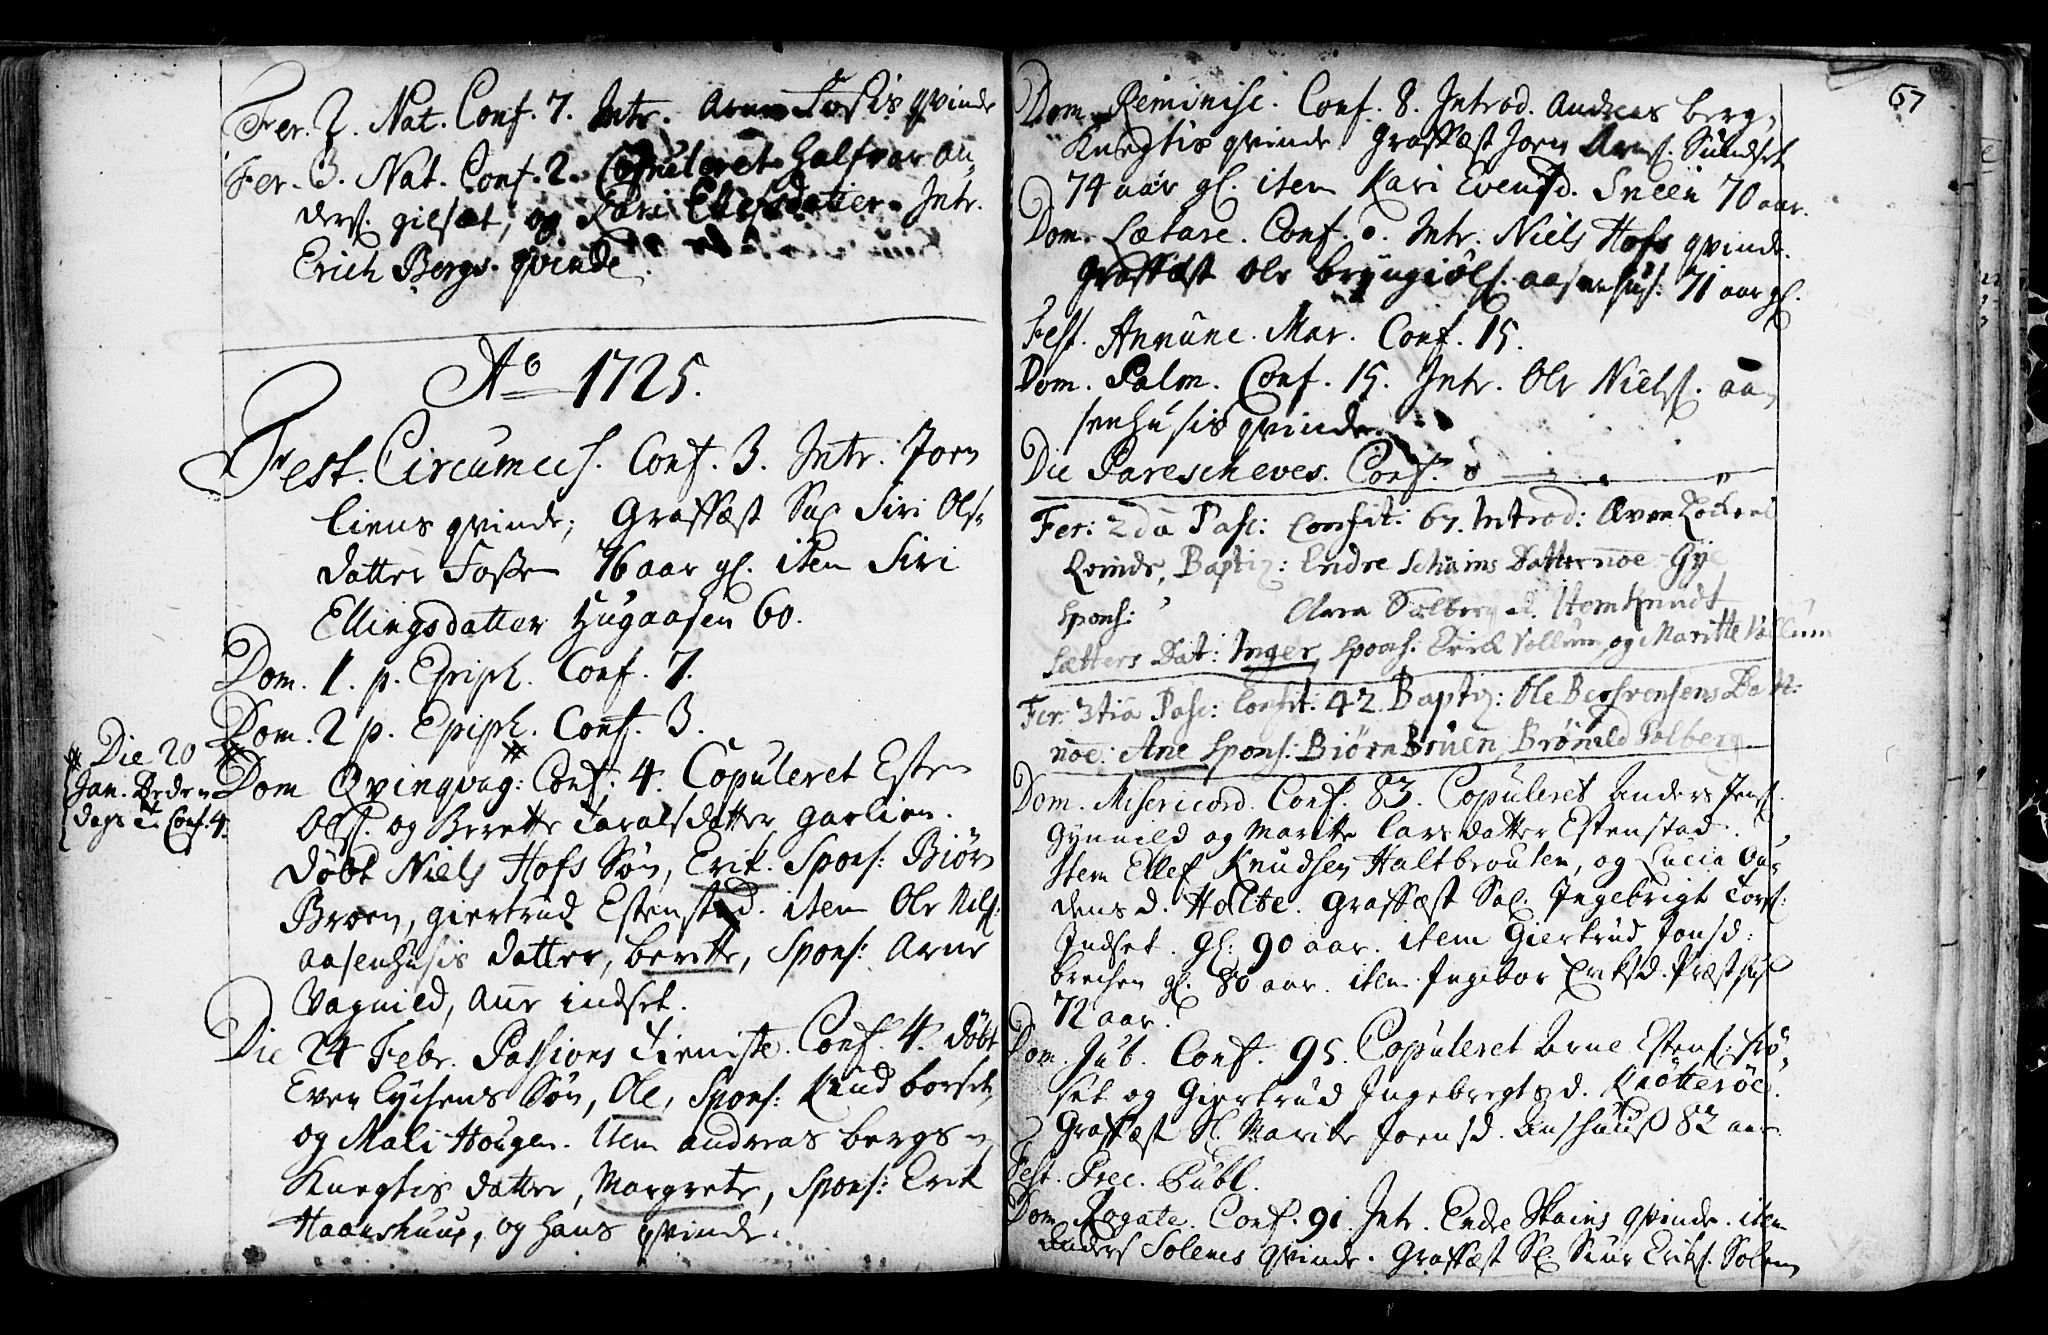 Fer. 2. Nat. Conf. 7. Intr. Arne Foßis qvinde
Fer. 3. Nat. Conf. 2. Copuleret Halfvar An„
ders. gilset, og Kari Ellefsdatter. Intr.
Erich Bergs qvinde.
Ao 1725.
Fest. Circumcis. Conf. 3. Intr. Joen
Liens qvinde; Graffæst Sal. Siri Ols„
datter Foßen 76 aar gl. item Siri
Ellingsdatter Hugaasen 60.
Dom. 1. p. Epiph. Conf. 7.
Dom. 2 p. Epiph. Conf. 3.
* Die 20
Jan. Bede„
dags t. Conf. 4.
Dom Qvinqvag: Conf. 4. Copuleret Esten
Ols. og Berette Taralsdatter Garlien.
døbt Niels Hofs Søn, Erik. Spons: Biørn
Broen, Giertrud Estenstad. item Ole Nils:
aasenhusis datter, berette, Spons: Arne
Vagnild, Ane indset.
Die 24 Febr. Passions Tieniste. Conf. 4. døbt
Even Lysens Søn, Ole, Spons: Knud borset,
og Mali Hougen. Item andreas bergs„
Knegtis datter, Margrete, Spons: Erik
Haanshuus, og hans qvinde.
67
Dom. Reminisc. Conf. 8. Introd. Andreas berg„
Knegtis qvinde Graffæst Joen Arns. Sundset
74 aar gl. item Kari Evensd. Sneen 70 aar.
Dom. Lætare. Conf. 0. Intr. Niels Hofs qvinde.
Graffæst Ole bryngiols. aasenhus. 71 aar gl.
Fest. Annunc. Mar. Conf. 15.
Dom. Palm. Conf. 15. Intr. Ole Niels. aa„
senhusis qvinde.
Die Parescheves. Conf. 0
Fer: 2da Pasc: Confit: 67. Introd: Even
Qvinde, Baptiz: Endre Schains Datter noe
Spons: Item Knudt
Sætters Dat: Inger, Spons. Erick Vollum, og Maritte Vollum
Fer: 3tia Pasc: Confit: 42. Baptiz: Ole Datt:
noe: Ane Spons: Biørn Bruen, Brønild Solberg
Dom. Misericord. Conf. 83. Copuleret Anders Jens.
Gynnild og Marite Larsdatter Estenstad.
Item Ellef Knudsen Haltbrouten, og Lucia Au„
dens d. Holte. Graffæst Sal. Ingebrigt Tors.
Indset. gl. 90 aar. item Giertrud Jonsd:
brechen gl. 80 aar. item Ingebor Eriksd. Præsthus
72 aar.
Dom. Jub. Conf. 95. Copuleret Arne Estens. Frø„
set og Giertrud Ingebregts d. Krötteröe.
Graffæst Sl. Marite Joensd. 82 aar
Fest. Prec. Publ.
Dom. Rogate. Conf. 91. Intr. Endre Skains qvinde. item
Anders Solems qvinde. Graffæst Sl. Siur Eriks. Solem